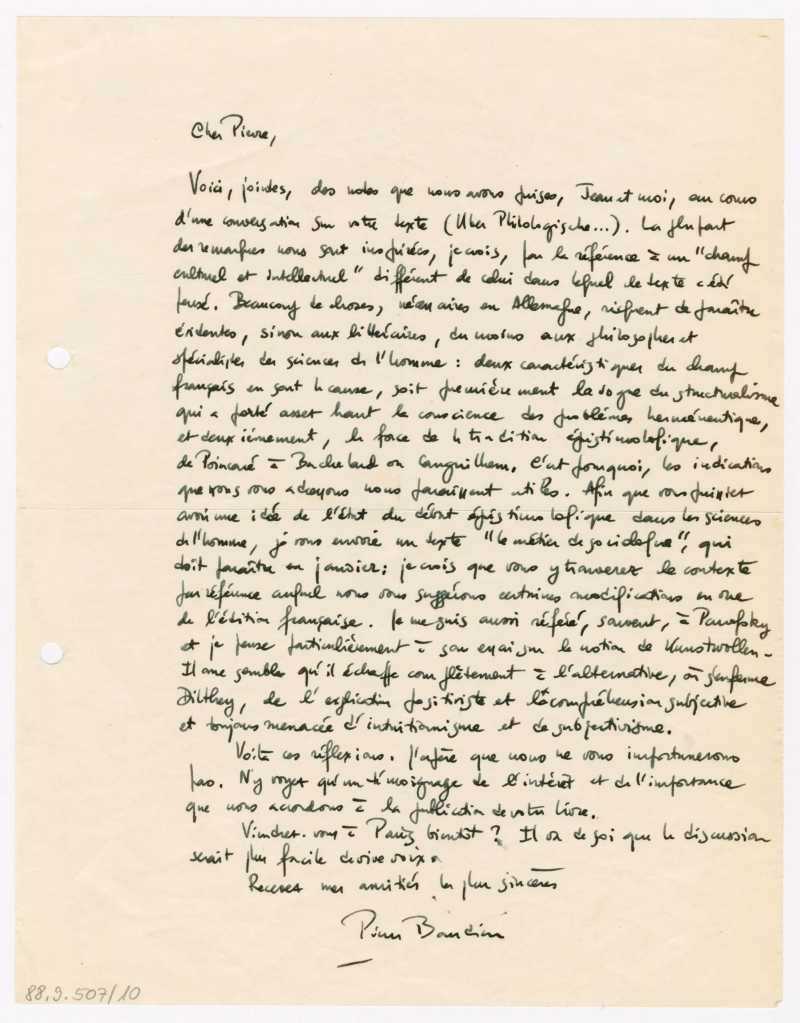 Cher Pierre,
Voici, jointes, des notes que nous avons prises, Jean et moi, au cours
d'une conversation sur votre texte (Uber Philologische...). La plupart
des remarques nous sont inspirées, je crois, par la référence à un "champ
culturel et intellectuel" différent de celui dans lequel le texte a été
pensé. Beaucoup de choses, nécessaires en Allemagne, risquent de paraître
évidentes, sinon aux littéraires, du moins aux philosophes et
spécialistes des sciences de l'homme : deux caractéristiques du champ
français en sont la cause, soit premièrement la vogue du structuralisme
qui a porté assez haut la conscience des problèmes herméneutique,
et deuxièmement, la force de la tradition épistémologique,
de Poincaré à Bachelard ou Canguilhem. C'est pourquoi, les indications
que nous vous adressons nous paraissent utiles. Afin que vous puissiez
avoir une idée de l'état du débat épistémologique dans les sciences
de l'homme, je vous envoie un texte "le métier de sociologue", qui
doit paraître en janvier ; je crois que vous y trouverez le contexte
par référence auquel nous vous suggérons certaines modifications en vue
de l'édition française. Je me suis aussi référé, souvent, à Panofsky
et je pense particulièrement à son essai sur la notion de Kunstwollen.
Il me semble qu'il échappe complètement à l'alternative, où s'enferme
Dilthey, de l'explication positiviste et la compréhension subjective
et toujours menacée d'intuitionisme et de subjectivisme.
Voilà ces réflexions. J'espère que nous ne vous importunerons
pas. N'y voyez qu'un témoignage de l'intérêt et de l'importance
que nous accordons à la publication de votre livre.
Viendrez-vous à Paris bientôt ? Il va de soi que la discussion
serait plus facile de vive voix.
Recevez mes amitiés les plus sincères
Pierre Bourdieu
88.9.507/10